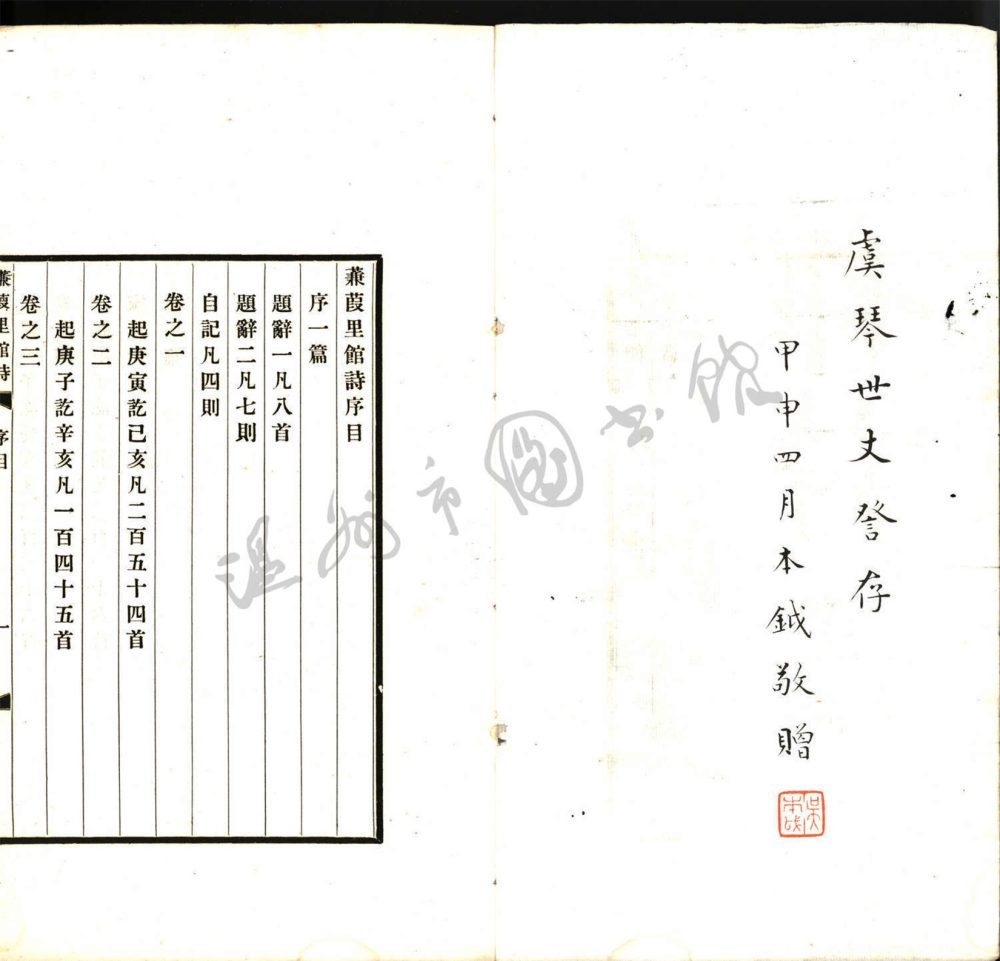 虞琴世丈詧存
甲申四月本鉞敬贈
吳本鉞
溫州市圖书館
蒹葭里館詩序目
序一篇
題辭一凡八首
題辭二凡七則
自記凡四則
卷之一
起庚寅訖己亥凡二百五十四首
卷之二
起庚子訖辛亥凡一百四十五首
卷之三
蒹葭里館詩
序目
一